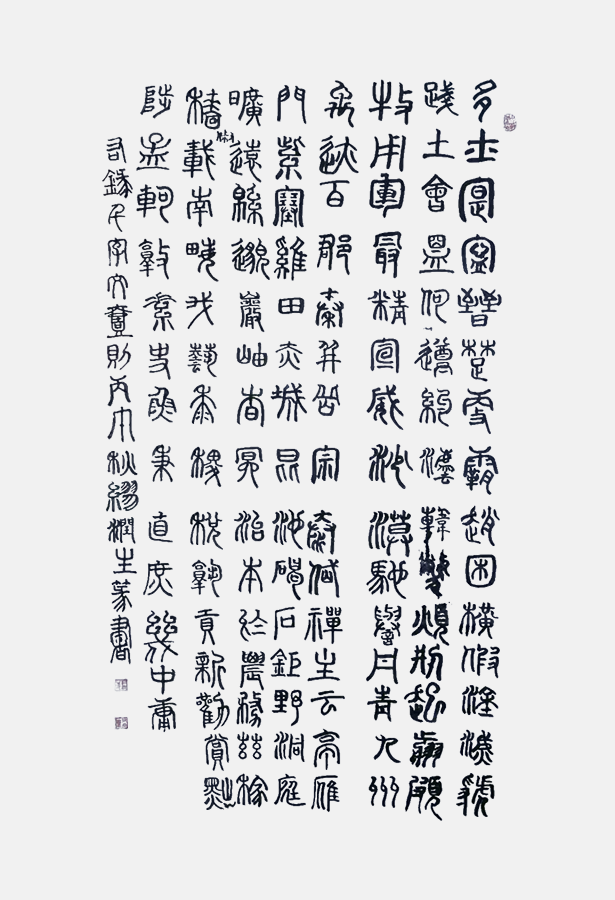 多士寔寧晉楚更霸趙困橫假途滅虢
踐土會盟何遵約法韓弊煩刑起翦頗
牧用軍最精宣威沙漠馳譽丹青九州
禹跡百郡秦并嶽宗恆岱禪主云亭雁
門紫塞雞田赤城昆池碣石鉅野洞庭
曠遠綿邈巖岫杳冥治本於農務茲稼
穡俶載南畝我藝黍稷稅熟貢新勸賞黜
陟孟軻敦素史魚秉直庶幾中庸
右錄千字文壹則丙秋繆潤生篆書